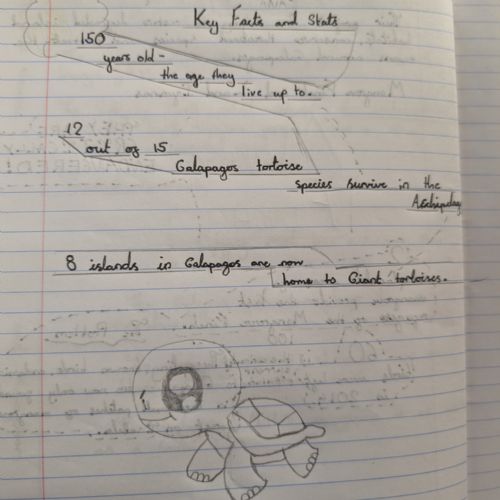 Key Facts and Stats
150
years old -
the age they
live up to.
12
out of 15
Galapagos tortoise
species survive in the
Archipelag
8 islands in Galapagos are now
home to Giant tortoises.